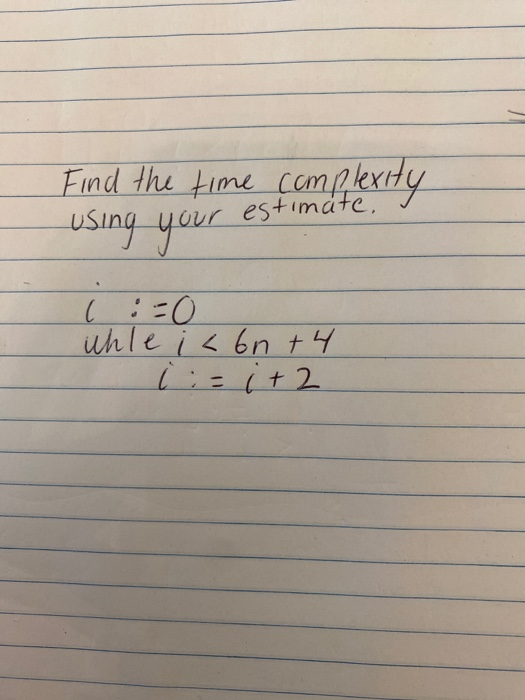 Find the time complexity
using your estimate.
i := 0
while i < 6n + 4
i := i + 2